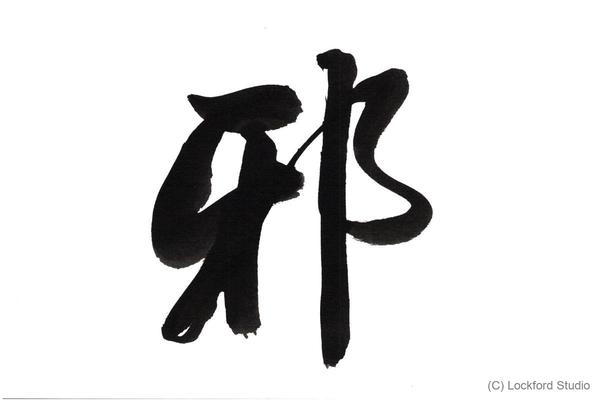 邪
(C) Lockford Studio